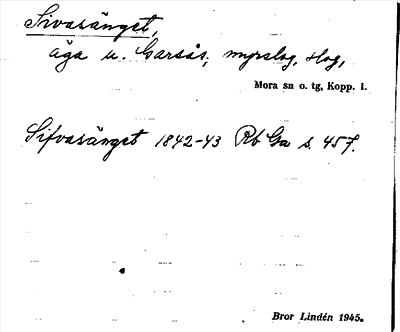 Sivasänget,
äga u. Garsås, myrslog, slog,
Mora sn o. tg, Kopp. l.
Sifvasänget 1842-43 Rb Ga s. 457.
Bror Lindén 1945.